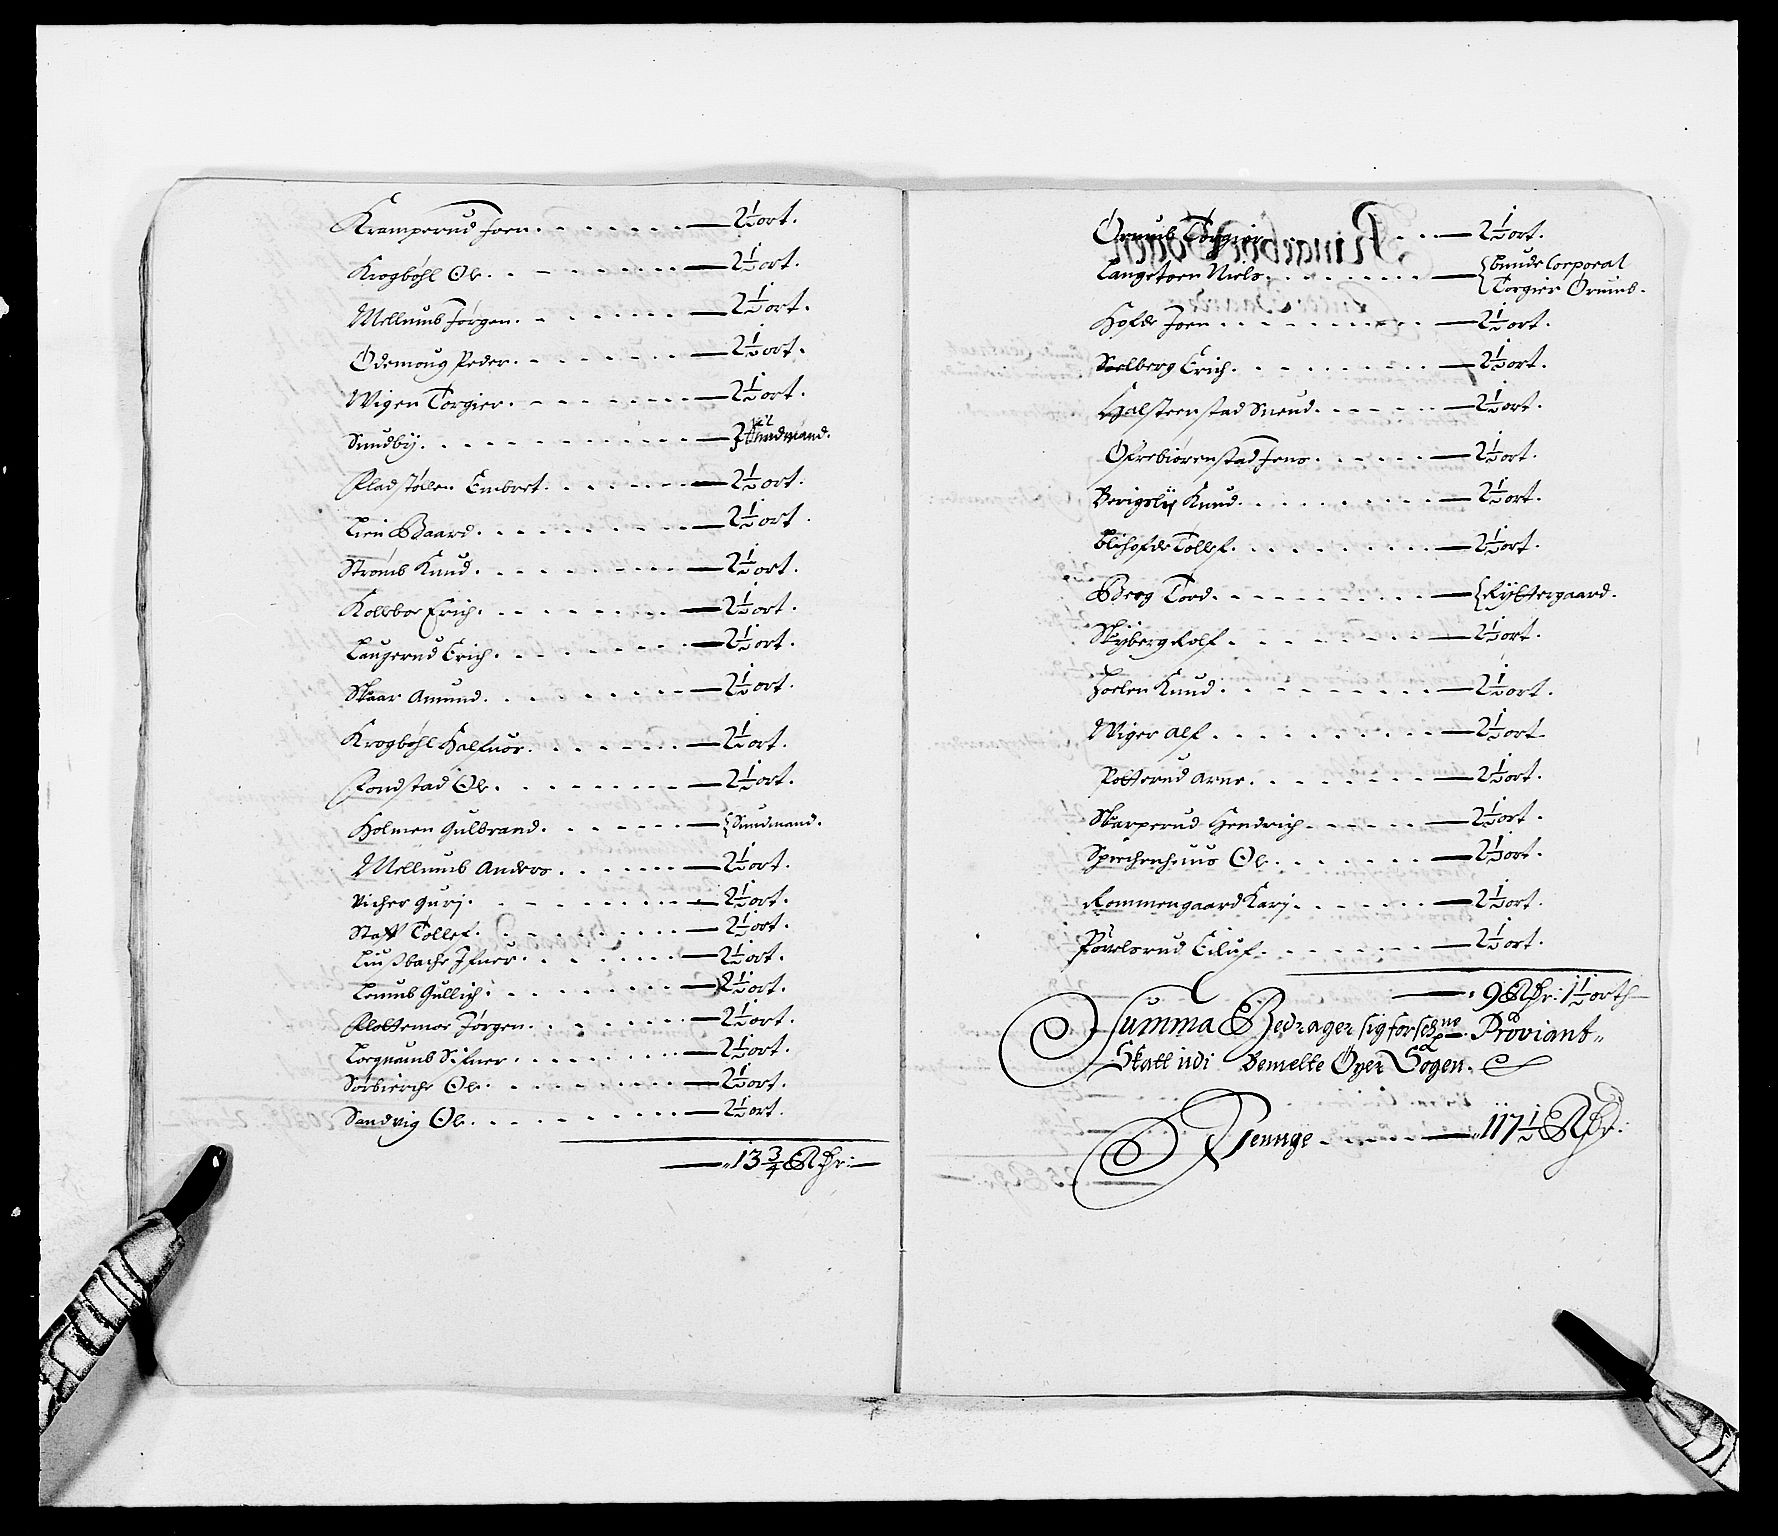 Kramperud Joen. — 2½ ort.
Krogbøhl Ole. — 2½ ort.
Mellumb Jørgen. — 2½ ort.
Ødemoug Peder. — 2½ ort.
Wigen Torgier. — 2½ ort.
Sundby. — Sundmand.
Pladstølen Embret. — 2½ ort.
Lien Baard. — 2½ ort.
Strømb Knud. — 2½ ort.
Kolleboe Erich. — 2½ ort.
Laugerud Erich. — 2½ ort.
Skaar Amund. — 2½ ort.
Krogbøhl Halfuor. — 2½ ort.
Rondstad Ole. — 2½ ort.
Holmen Gulbrand. — { Sundmand.
Mellumb Anders — 2½ ort.
Vicher Gurj. — 2½ ort.
Staff Tollef. — 2½ ort.
Liußbache Ifuer. — 2½ ort.
Lomb Gullich. — 2½ ort.
Plottemoe Jørgen. — 2½ ort.
Losgnamb Sifuer. — 2½ ort.
Sørbierche Ole. — 2½ ort.
Sandvig Ole. — 2½ ort.
— 13 3/4 Rdr: —
Ørumb Torgier — 2½ ort.
Langetoen Niels. — { Lunde Corporal
Torgier Ørumb.
Hofde Joen. — 2½ ort.
Soelberg Erich. — 2½ ort.
Halsteenstad Snend. — 2½ ort.
Øfrebiørenstad Jens. — 2½ ort.
Berigslij Knud. — 2½ ort.
Blihofde Tollef. — 2½ ort.
Berg Tord. — { Rÿttergaard.
Skÿberg Rolf. — 2½ ort.
Joelen Knud. — 2½ ort.
Wiger Alf. — 2½ ort.
Potterud Arne. — 2½ ort.
Skarperud Hendrich. — 2½ ort.
Spirchenhuus Ole. — 2½ ort.
Rommengaard Karj. — 2½ ort.
Povelsrud Eiluf. — 2½ ort.
— 9 Rdr: 1½ orth
Summa Bedrager sig forschne Proviant-
Skatt udi Bemelte Øyer Sogen.
Penge — 117½ Rdr: